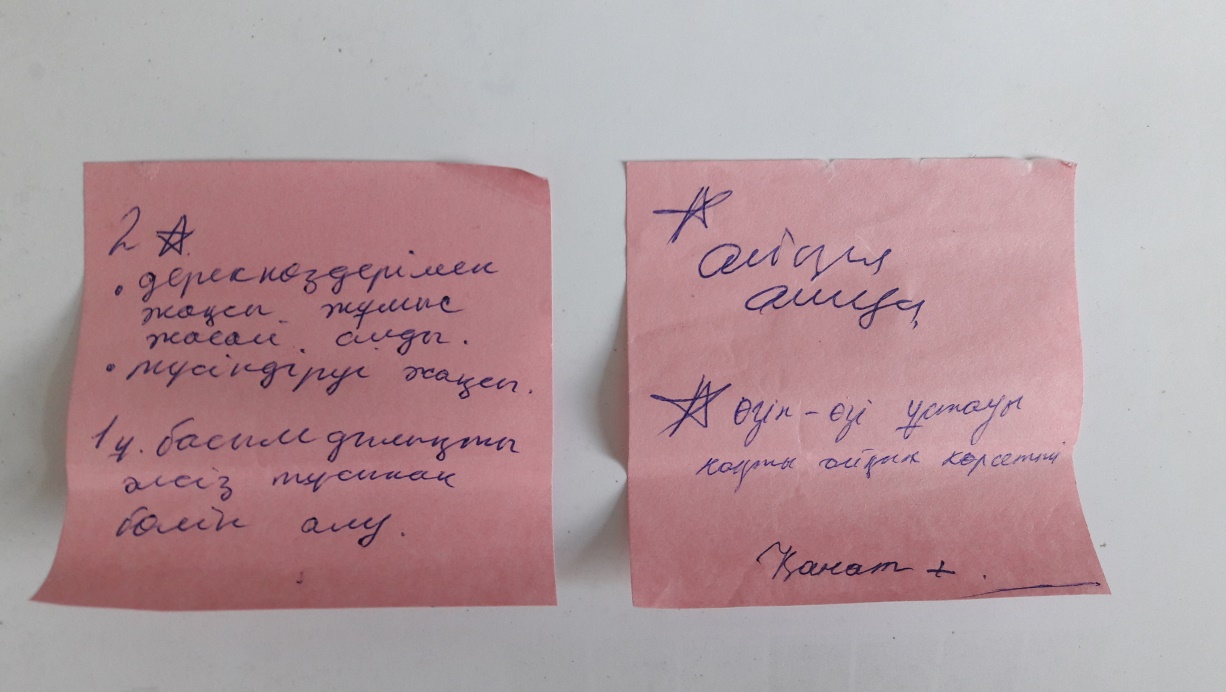 2 ☆
• дереккөздерімен
жақсы жұмыс
жасай алды.
• түсіндіруі жақсы.
1 ұ. басымдылықты
әлсіз тусынан
бөліп алу.
☆
ашық
☆ өзін-өзі ұстауы
нақты айқын көрсетті
Қанат +.